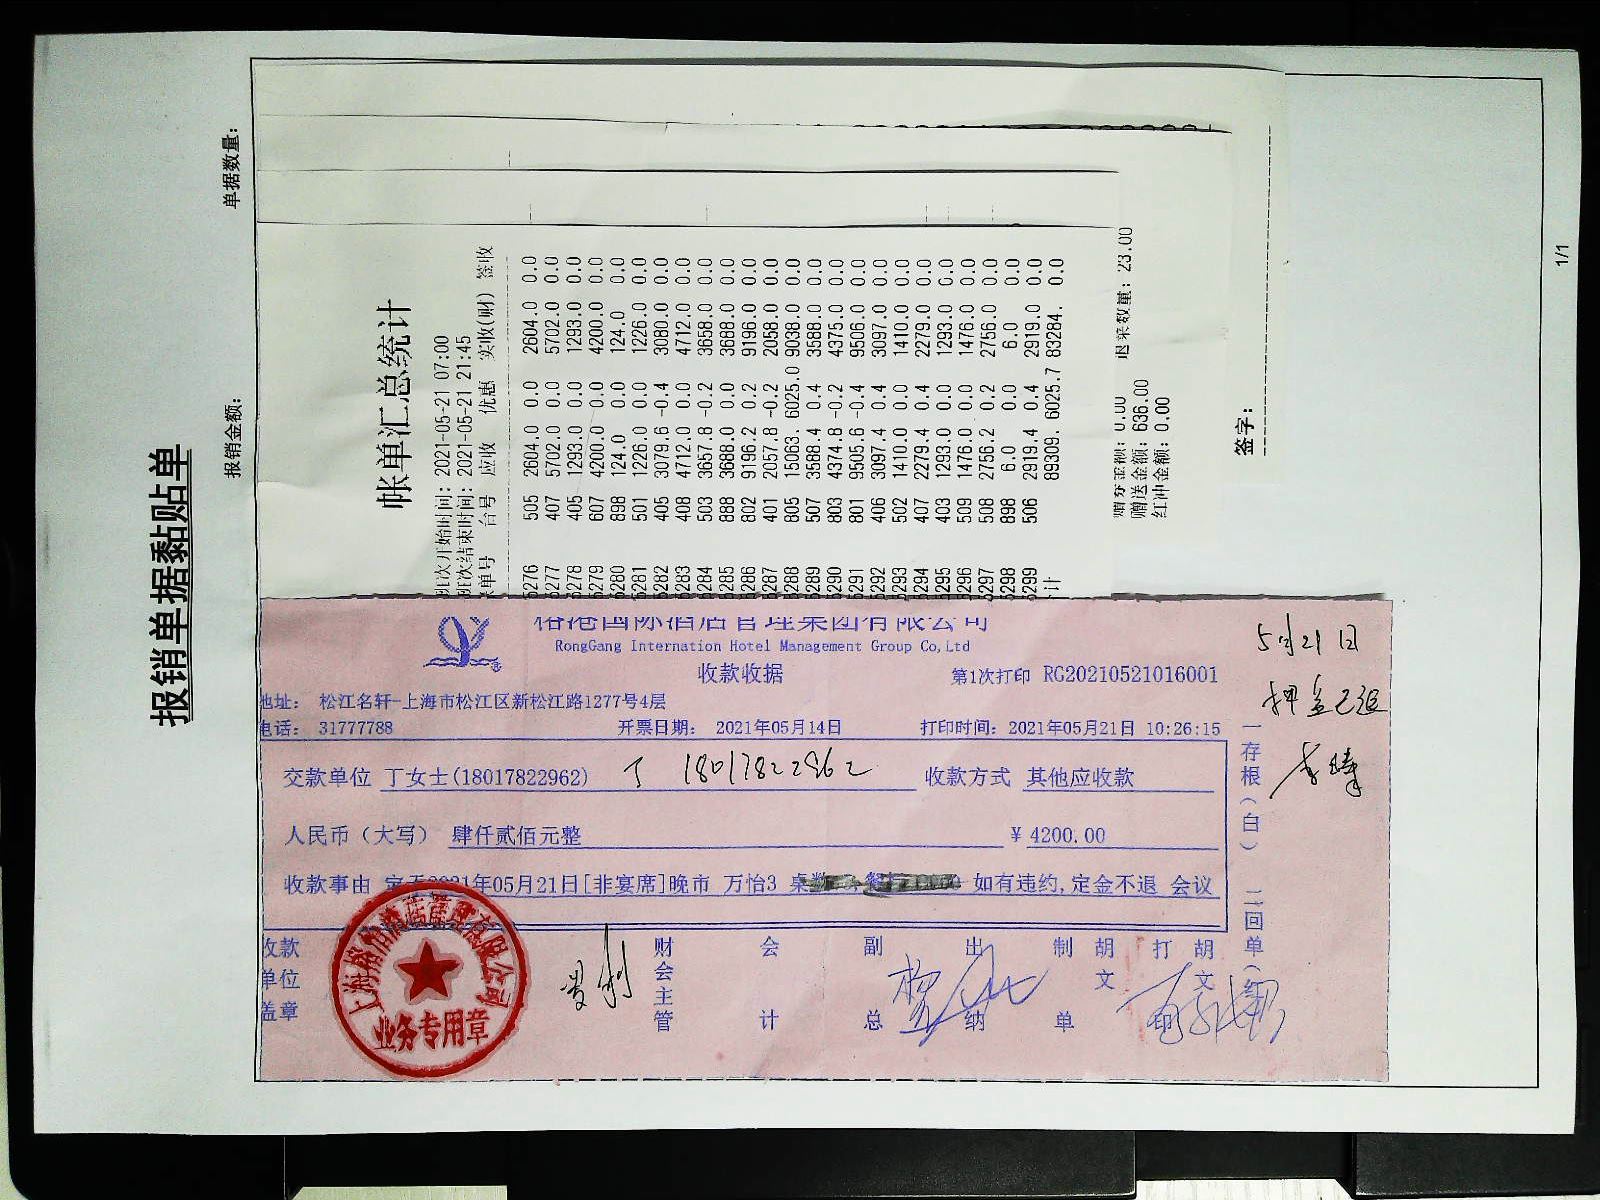 报销单据黏贴单
报销金额:
单据数量:
帐单汇总统计
班次开始时间: 2021-05-21 07:00
班次结束时间: 2021-05-21 21:45
单号 台号 应收 优惠 实收(财) 签收
5276 505 2604.0 0.0 2604.0 0.0
5277 407 5702.0 0.0 5702.0 0.0
5278 405 1293.0 0.0 1293.0 0.0
5279 607 4200.0 0.0 4200.0 0.0
5280 898 124.0 0.0 124.0 0.0
5281 501 1226.0 0.0 1226.0 0.0
5282 405 3079.6 -0.4 3080.0 0.0
5283 408 4712.0 0.0 4712.0 0.0
5284 503 3657.8 -0.2 3658.0 0.0
5285 888 3688.0 0.0 3688.0 0.0
5286 802 9196.2 0.2 9196.0 0.0
5287 401 2057.8 -0.2 2058.0 0.0
5288 805 15063. 6025.0 9038.0 0.0
5289 507 3588.4 0.4 3588.0 0.0
5290 803 4374.8 -0.2 4375.0 0.0
5291 801 9505.6 -0.4 9506.0 0.0
5292 406 3097.4 0.4 3097.0 0.0
5293 502 1410.0 0.0 1410.0 0.0
5294 407 2279.4 0.4 2279.0 0.0
5295 403 1293.0 0.0 1293.0 0.0
5296 509 1476.0 0.0 1476.0 0.0
5297 508 2756.2 0.2 2756.0 0.0
5298 898 6.0 0.0 6.0 0.0
5299 506 2919.4 0.4 2919.0 0.0
计 89309. 6025.7 83284. 0.0
金额: 0.00 退菜数量: 23.00
赠送金额: 636.00
红冲金额: 0.00
签字:
1/1
榕港国际酒店管理集团有限公司
RongGang Internation Hotel Management Group Co,Ltd
收款收据
第1次打印 RG20210521016001
地址: 松江名轩-上海市松江区新松江路1277号4层
电话: 31777788 开票日期: 2021年05月14日 打印时间: 2021年05月21日 10:26:15
交款单位 丁女士(18017822962) 丁 18017822962 收款方式 其他应收款
人民币(大写) 肆仟贰佰元整 ¥ 4200.00
收款事由 2021年05月21日[非宴席]晚市 万怡3 桌 如有违约,定金不退 会议
收款单位盖章
财会主管 会计 副总 出纳 制单 胡文 打印 胡文
一存根(白) 二回单(红)
业务专用章
5月21日
押金已退